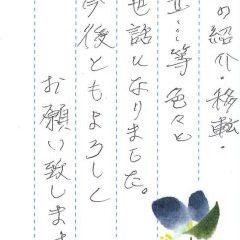 の紹介・移転・
立…等色々と
世話になりました。
今後ともよろしく
お願い致します